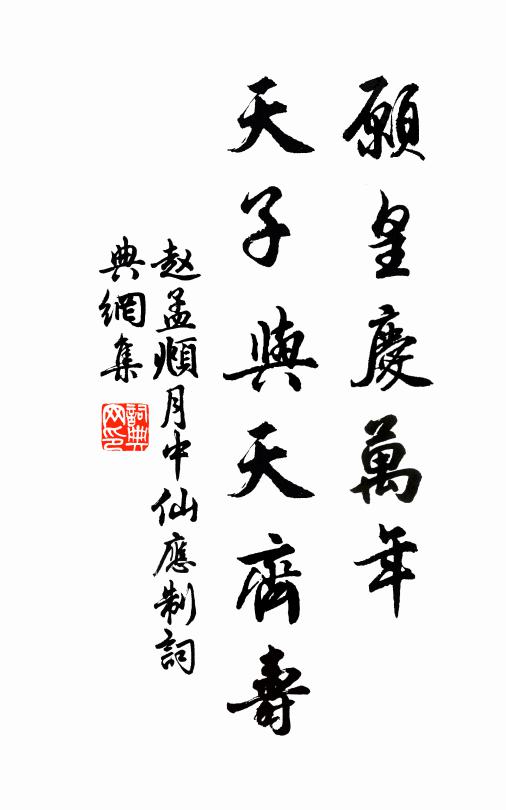 願皇慶萬年
天子與天齊壽
赵孟頫月中仙應制詞
典網集
詞典网印